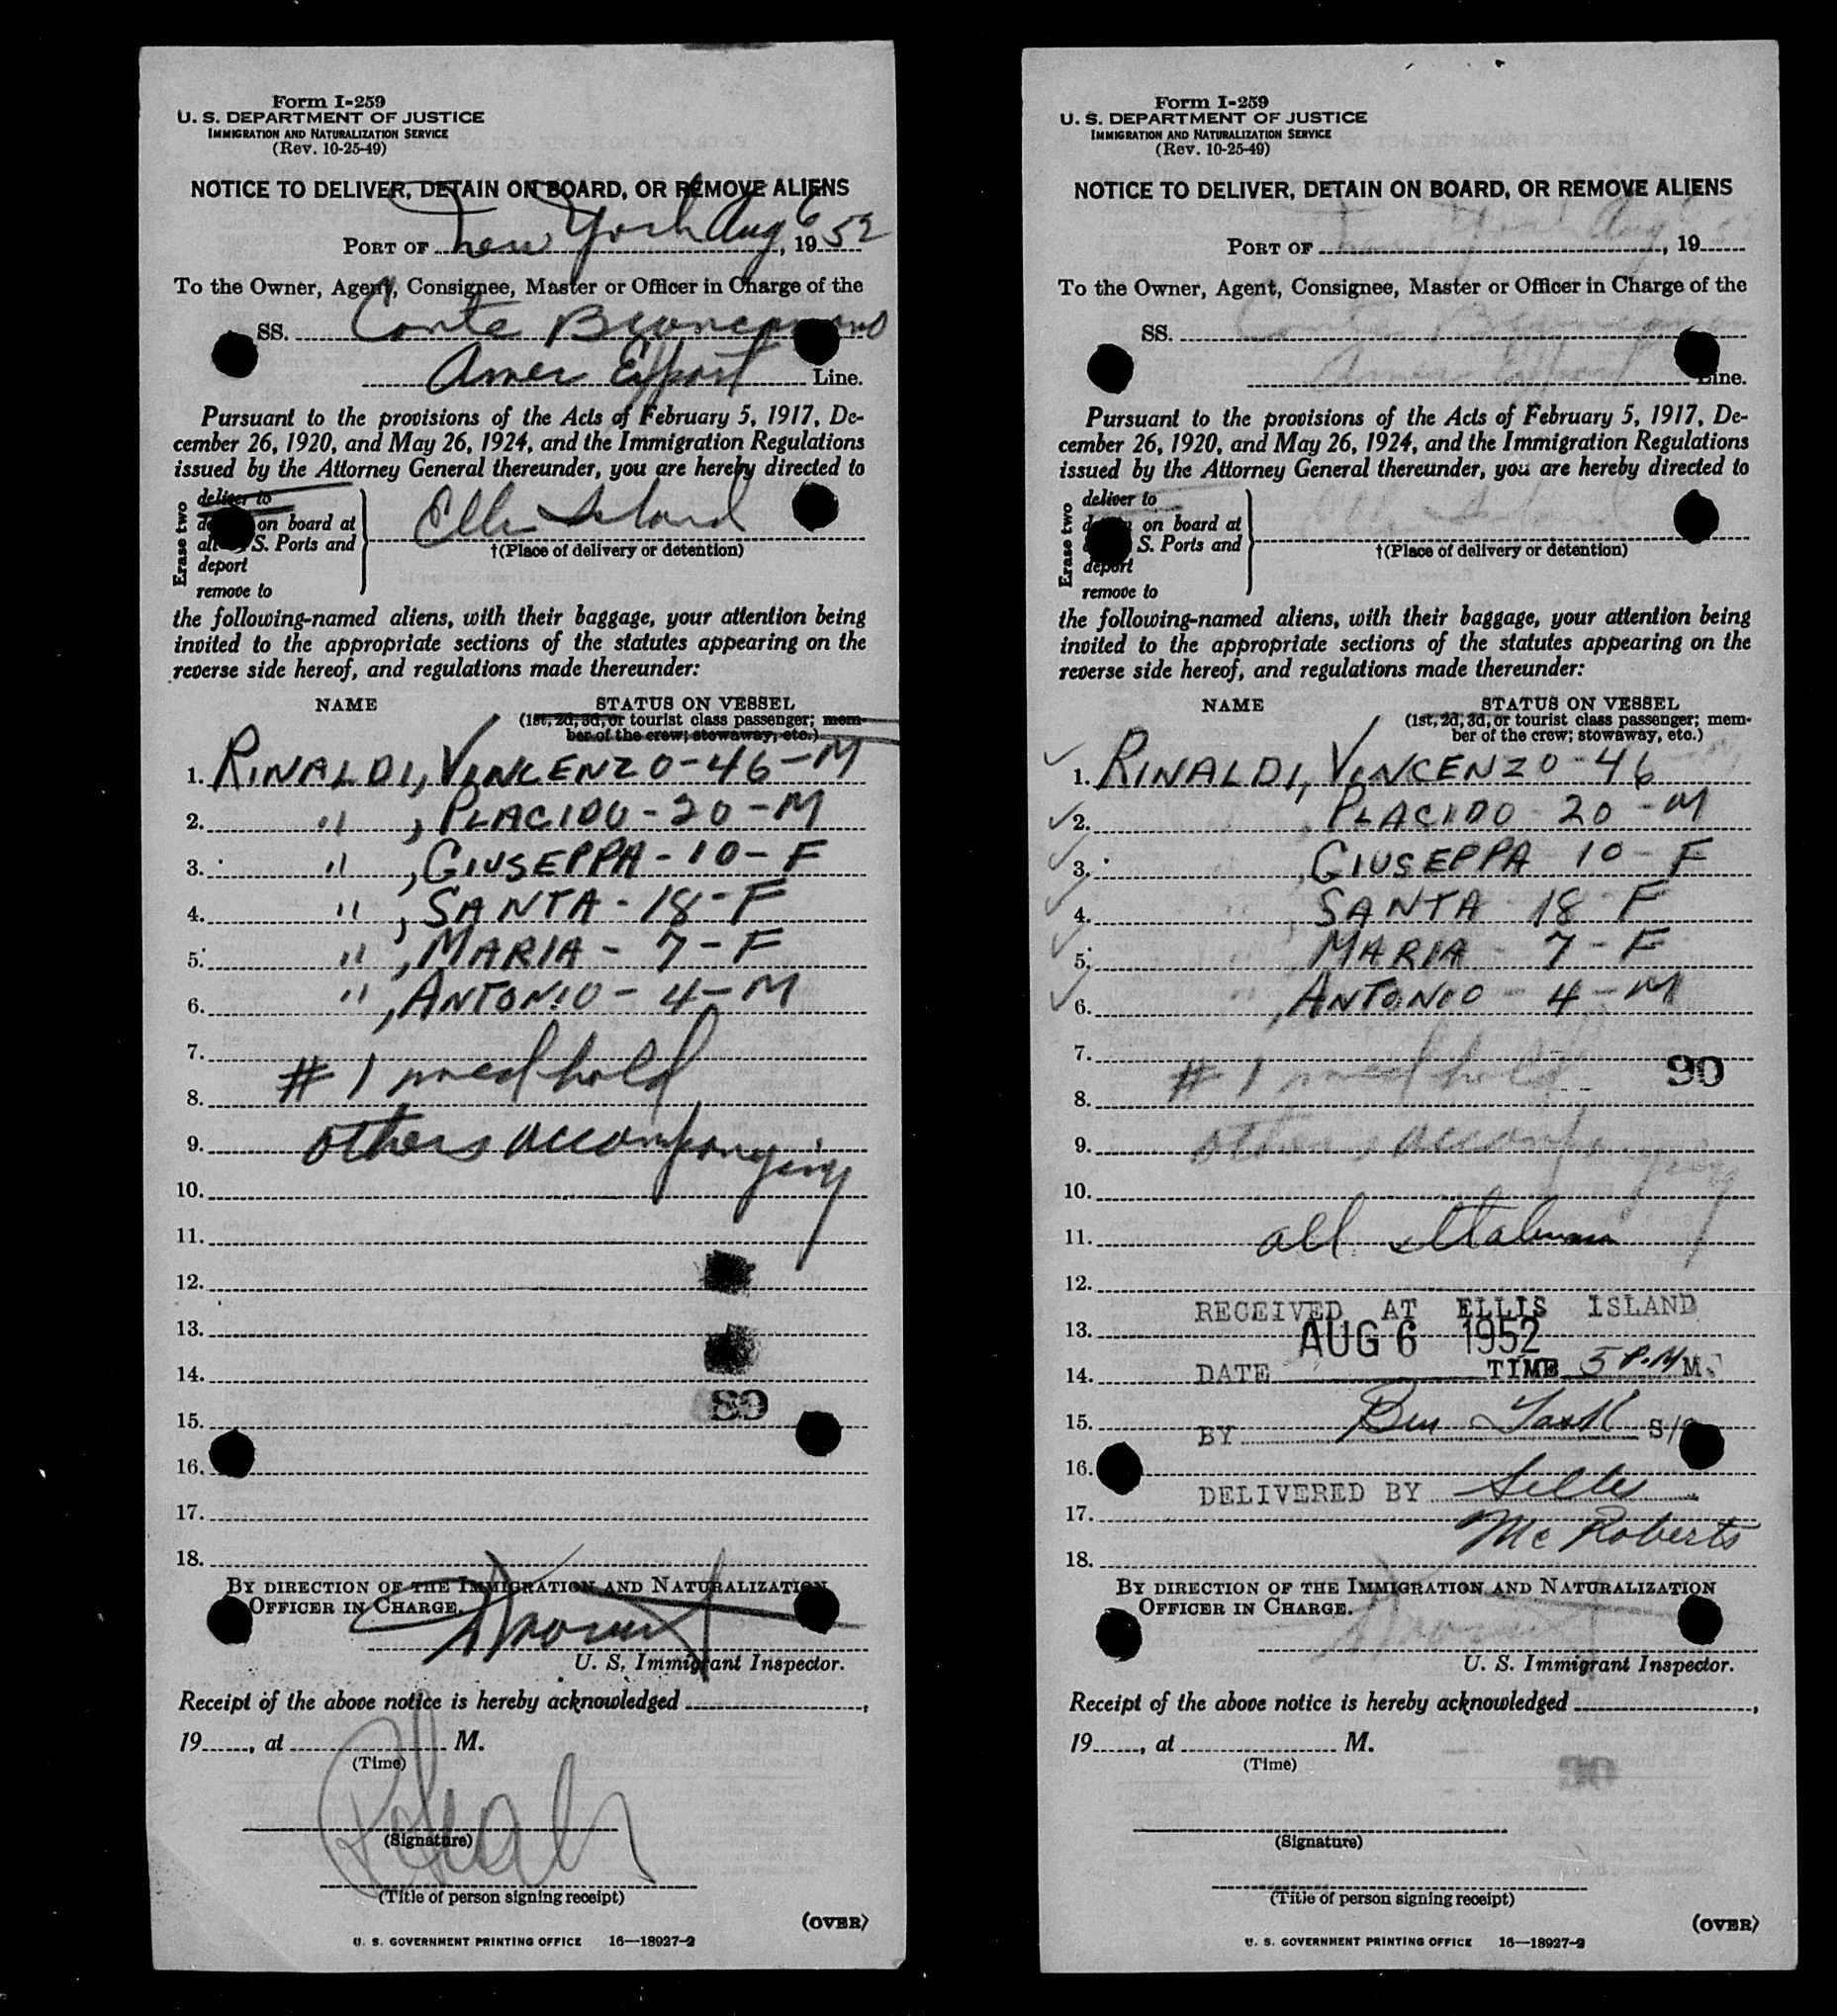 Form I-259
U. S. DEPARTMENT OF JUSTICE
IMMIGRATION AND NATURALIZATION SERVICE
(Rev. 10-25-49)
NOTICE TO DELIVER, DETAIN ON BOARD, OR REMOVE ALIENS
PORT OF New York Aug 6, 1952
To the Owner, Agent, Consignee, Master or Officer in Charge of the
SS. Conte Biancamano
Amer Export Line.
Pursuant to the provisions of the Acts of February 5, 1917, De-
cember 26, 1920, and May 26, 1924, and the Immigration Regulations
issued by the Attorney General thereunder, you are hereby directed to
Erase two
deliver to
on board at
S. Ports and
deport
remove to
Ellis Island
†(Place of delivery or detention)
the following-named aliens, with their baggage, your attention being
invited to the appropriate sections of the statutes appearing on the
reverse side hereof, and regulations made thereunder:
NAME STATUS ON VESSEL
(1st, 2d, 3d, or tourist class passenger; mem-
ber of the crew; stowaway, etc.)
1. RINALDI, VINCENZO-46-M
2. " , PLACIDO-20-M
3. " , GIUSEPPA-10-F
4. " , SANTA-18-F
5. " , MARIA-7-F
6. " , ANTONIO-4-M
7.
# 1 med hold
8.
9. others accompanying
10.
11.
12.
13.
14.
89
15.
16.
17.
18.
BY DIRECTION OF THE IMMIGRATION AND NATURALIZATION
OFFICER IN CHARGE.
U. S. Immigrant Inspector.
Receipt of the above notice is hereby acknowledged ,
19 , at M.
(Time)
(Signature)
(Title of person signing receipt)
(OVER)
U. S. GOVERNMENT PRINTING OFFICE 16—18927-2
Form I-259
U. S. DEPARTMENT OF JUSTICE
IMMIGRATION AND NATURALIZATION SERVICE
(Rev. 10-25-49)
NOTICE TO DELIVER, DETAIN ON BOARD, OR REMOVE ALIENS
PORT OF New York Aug 6, 1952
To the Owner, Agent, Consignee, Master or Officer in Charge of the
SS. Conte Biancamano
Amer Export Line.
Pursuant to the provisions of the Acts of February 5, 1917, De-
cember 26, 1920, and May 26, 1924, and the Immigration Regulations
issued by the Attorney General thereunder, you are hereby directed to
Erase two
deliver to
on board at
S. Ports and
deport
remove to
Ellis Island
†(Place of delivery or detention)
the following-named aliens, with their baggage, your attention being
invited to the appropriate sections of the statutes appearing on the
reverse side hereof, and regulations made thereunder:
NAME STATUS ON VESSEL
(1st, 2d, 3d, or tourist class passenger; mem-
ber of the crew; stowaway, etc.)
✓ 1. RINALDI, VINCENZO-46-M
✓ 2. " , PLACIDO-20-M
✓ 3. " , GIUSEPPA 10-F
✓ 4. " , SANTA 18-F
✓ 5. " , MARIA-7-F
✓ 6. " , ANTONIO-4-M
7.
# 1 med hold 90
8.
9. others accompanying
10.
11. all Italian
12.
RECEIVED AT ELLIS ISLAND
13. AUG 6 1952
14. DATE TIME 5 P.M M.
15. BY Ben
16.
DELIVERED BY
17. McRoberts
18.
BY DIRECTION OF THE IMMIGRATION AND NATURALIZATION
OFFICER IN CHARGE.
U. S. Immigrant Inspector.
Receipt of the above notice is hereby acknowledged ,
19 , at M.
(Time)
90
(Signature)
(Title of person signing receipt)
(OVER)
U. S. GOVERNMENT PRINTING OFFICE 16—18927-2